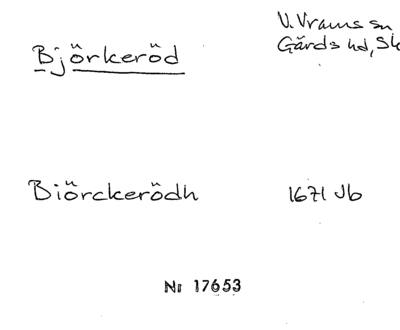 Björkeröd
V. Vrams sn
Gärds hd, Sk
Biörckerödh
1671 Jb
Nr 17653